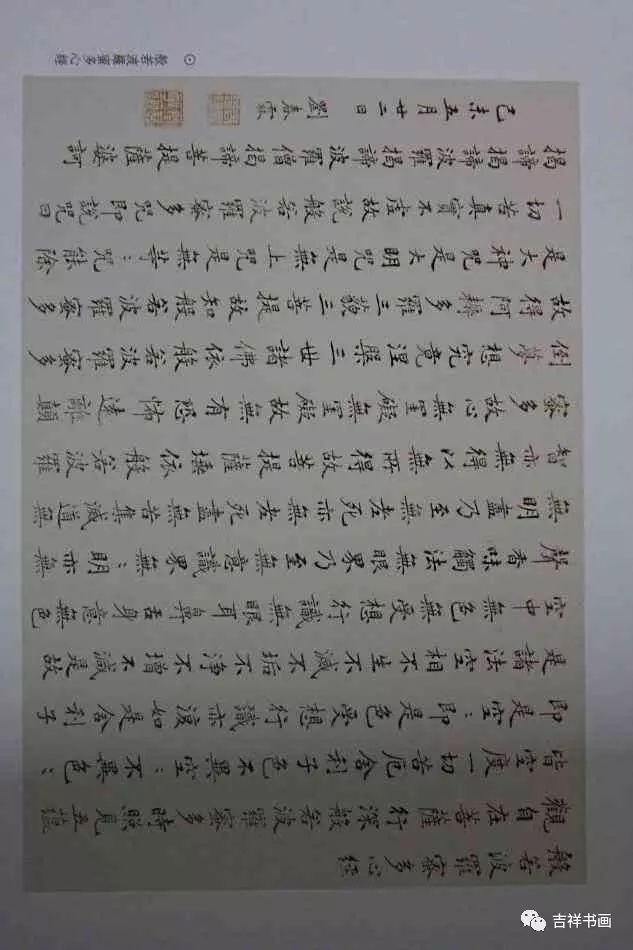 般若波羅蜜多心经
觀自在菩薩行深般若波羅蜜多時照見五蕴
皆空度一切苦厄舍利子色不異空〻不異色〻
即是空〻即是色受想行識亦復如是舍利子
是諸法空相不生不滅不垢不淨不增不減是故
空中無色無受想行識無眼耳鼻舌身意無色
聲香味觸法無眼界乃至無意識界無〻明亦無
無明盡乃至無老死亦無老死盡無苦集滅道無
智亦無得以無所得故菩提薩埵依般若波羅
蜜多故心無罣礙無罣礙故無有恐怖遠離顛
倒夢想究竟涅槃三世諸佛依般若波羅蜜多
故得阿耨多羅三藐三菩提故知般若波羅蜜多
是大神咒是大明咒是無上咒是無等〻咒能除
一切苦真實不虛故說般若波羅蜜多咒即說咒曰
揭諦揭諦波羅揭諦波羅僧揭諦菩提薩婆訶
己未五月廿二日 劉春霖
⊙ 般若波羅蜜多心經
吉祥书画